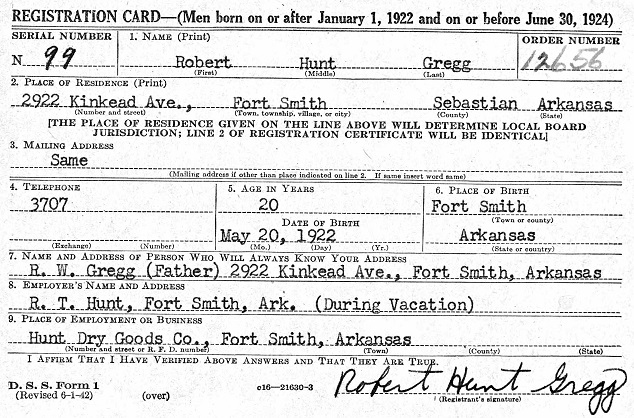 REGISTRATION CARD—(Men born on or after January 1, 1922 and on or before June 30, 1924)
SERIAL NUMBER 1. NAME (Print) ORDER NUMBER
N 99 Robert Hunt Gregg 12656
(First) (Middle) (Last)
2. PLACE OF RESIDENCE (Print)
2922 Kinkead Ave., Fort Smith Sebastian Arkansas
(Number and street) (Town, township, village, or city) (County) (State)
[THE PLACE OF RESIDENCE GIVEN ON THE LINE ABOVE WILL DETERMINE LOCAL BOARD
JURISDICTION; LINE 2 OF REGISTRATION CERTIFICATE WILL BE IDENTICAL]
3. MAILING ADDRESS
Same
(Mailing address if other than place indicated on line 2. If same insert word same)
4. TELEPHONE 5. AGE IN YEARS 6. PLACE OF BIRTH
3707 20 Fort Smith
DATE OF BIRTH (Town or county)
May 20, 1922 Arkansas
(Exchange) (Number) (Mo.) (Day) (Yr.) (State or country)
7. NAME AND ADDRESS OF PERSON WHO WILL ALWAYS KNOW YOUR ADDRESS
R. W. Gregg (Father) 2922 Kinkead Ave., Fort Smith, Arkansas
8. EMPLOYER'S NAME AND ADDRESS
R. T. Hunt, Fort Smith, Ark. (During Vacation)
9. PLACE OF EMPLOYMENT OR BUSINESS
Hunt Dry Goods Co., Fort Smith, Arkansas
(Number and street or R. F. D. number) (Town) (County) (State)
I AFFIRM THAT I HAVE VERIFIED ABOVE ANSWERS AND THAT THEY ARE TRUE.
D. S. S. Form 1 Robert Hunt Gregg
(Revised 6-1-42) (over) c16—21630-3 (Registrant's signature)